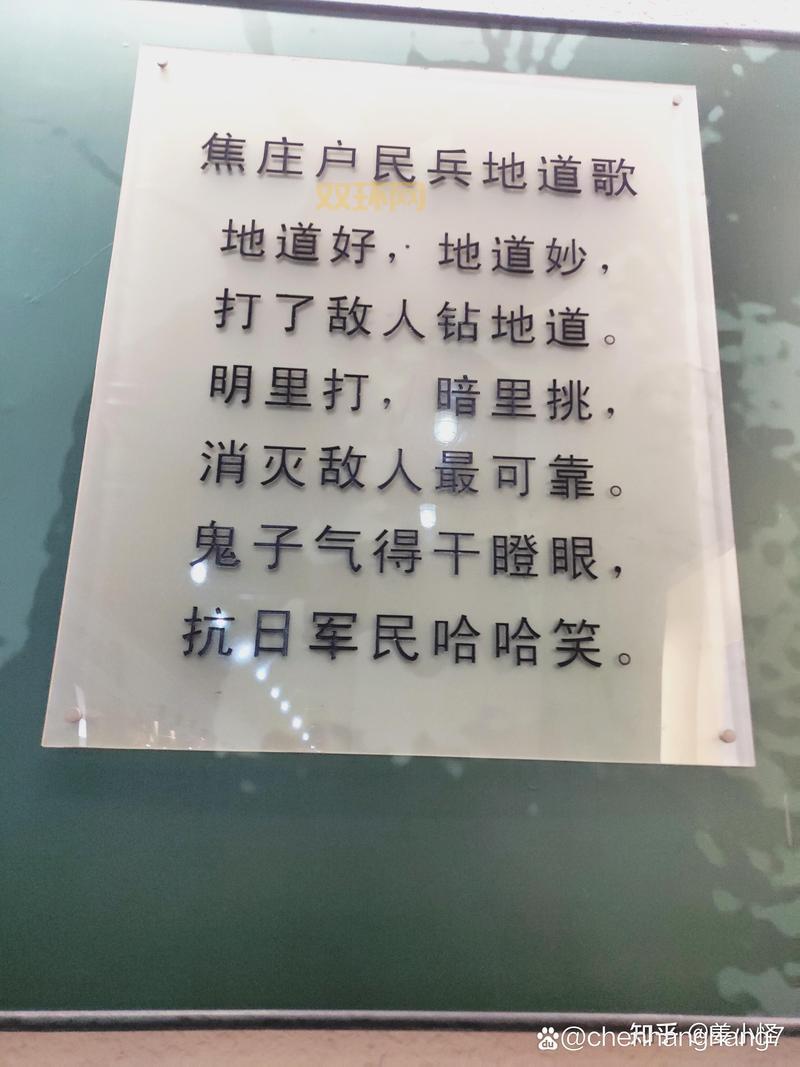 焦庄户民兵地道歌
双环网
地道好，地道妙，
打了敌人钻地道。
明里打，暗里挑，
消灭敌人最可靠。
鬼子气得干瞪眼，
抗日军民哈哈笑。
知乎 @姜小怪